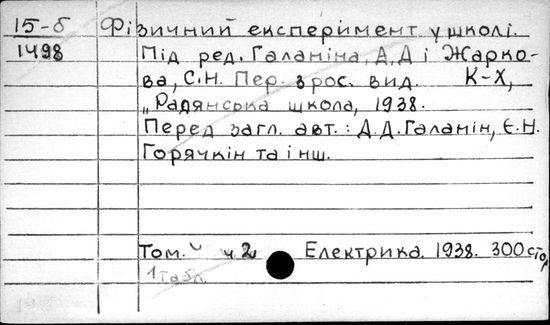 15-б Фізичний експеримент у школі.
1498 Під ред. Галаніна, Д.Д і Жарко-
ва, С.Н. Пер. з рос. вид. К-Х,
„Радянська школа, 1938.
Перед загл. авт.: Д.Д.Галанін, Є.Н.
Горячкін та інш.
Том. ч 2 Електрика. 1938. 300 стор
1 табл.